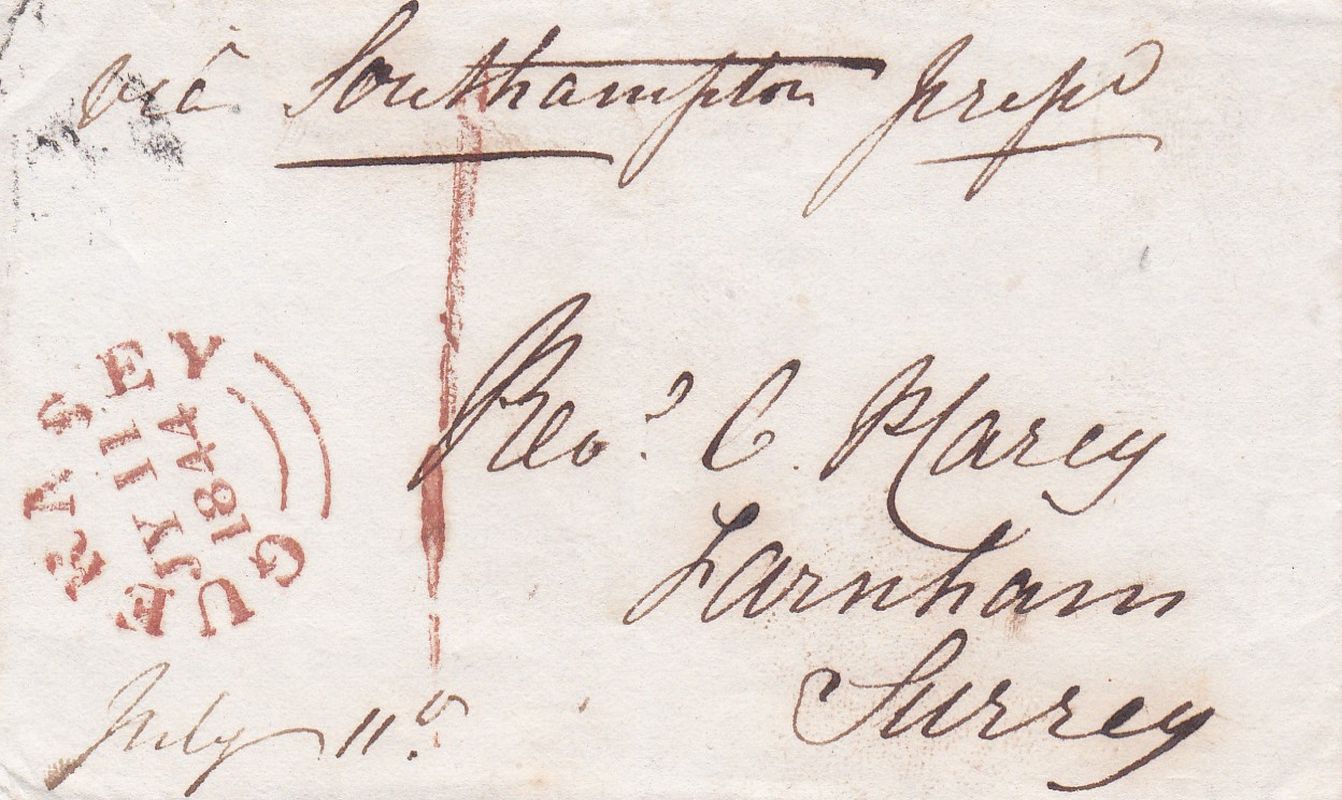 via Southampton prepd
GUERNSEY
JY 11
1844
Revd. C. Carey
Farnham
Surrey
July 11th